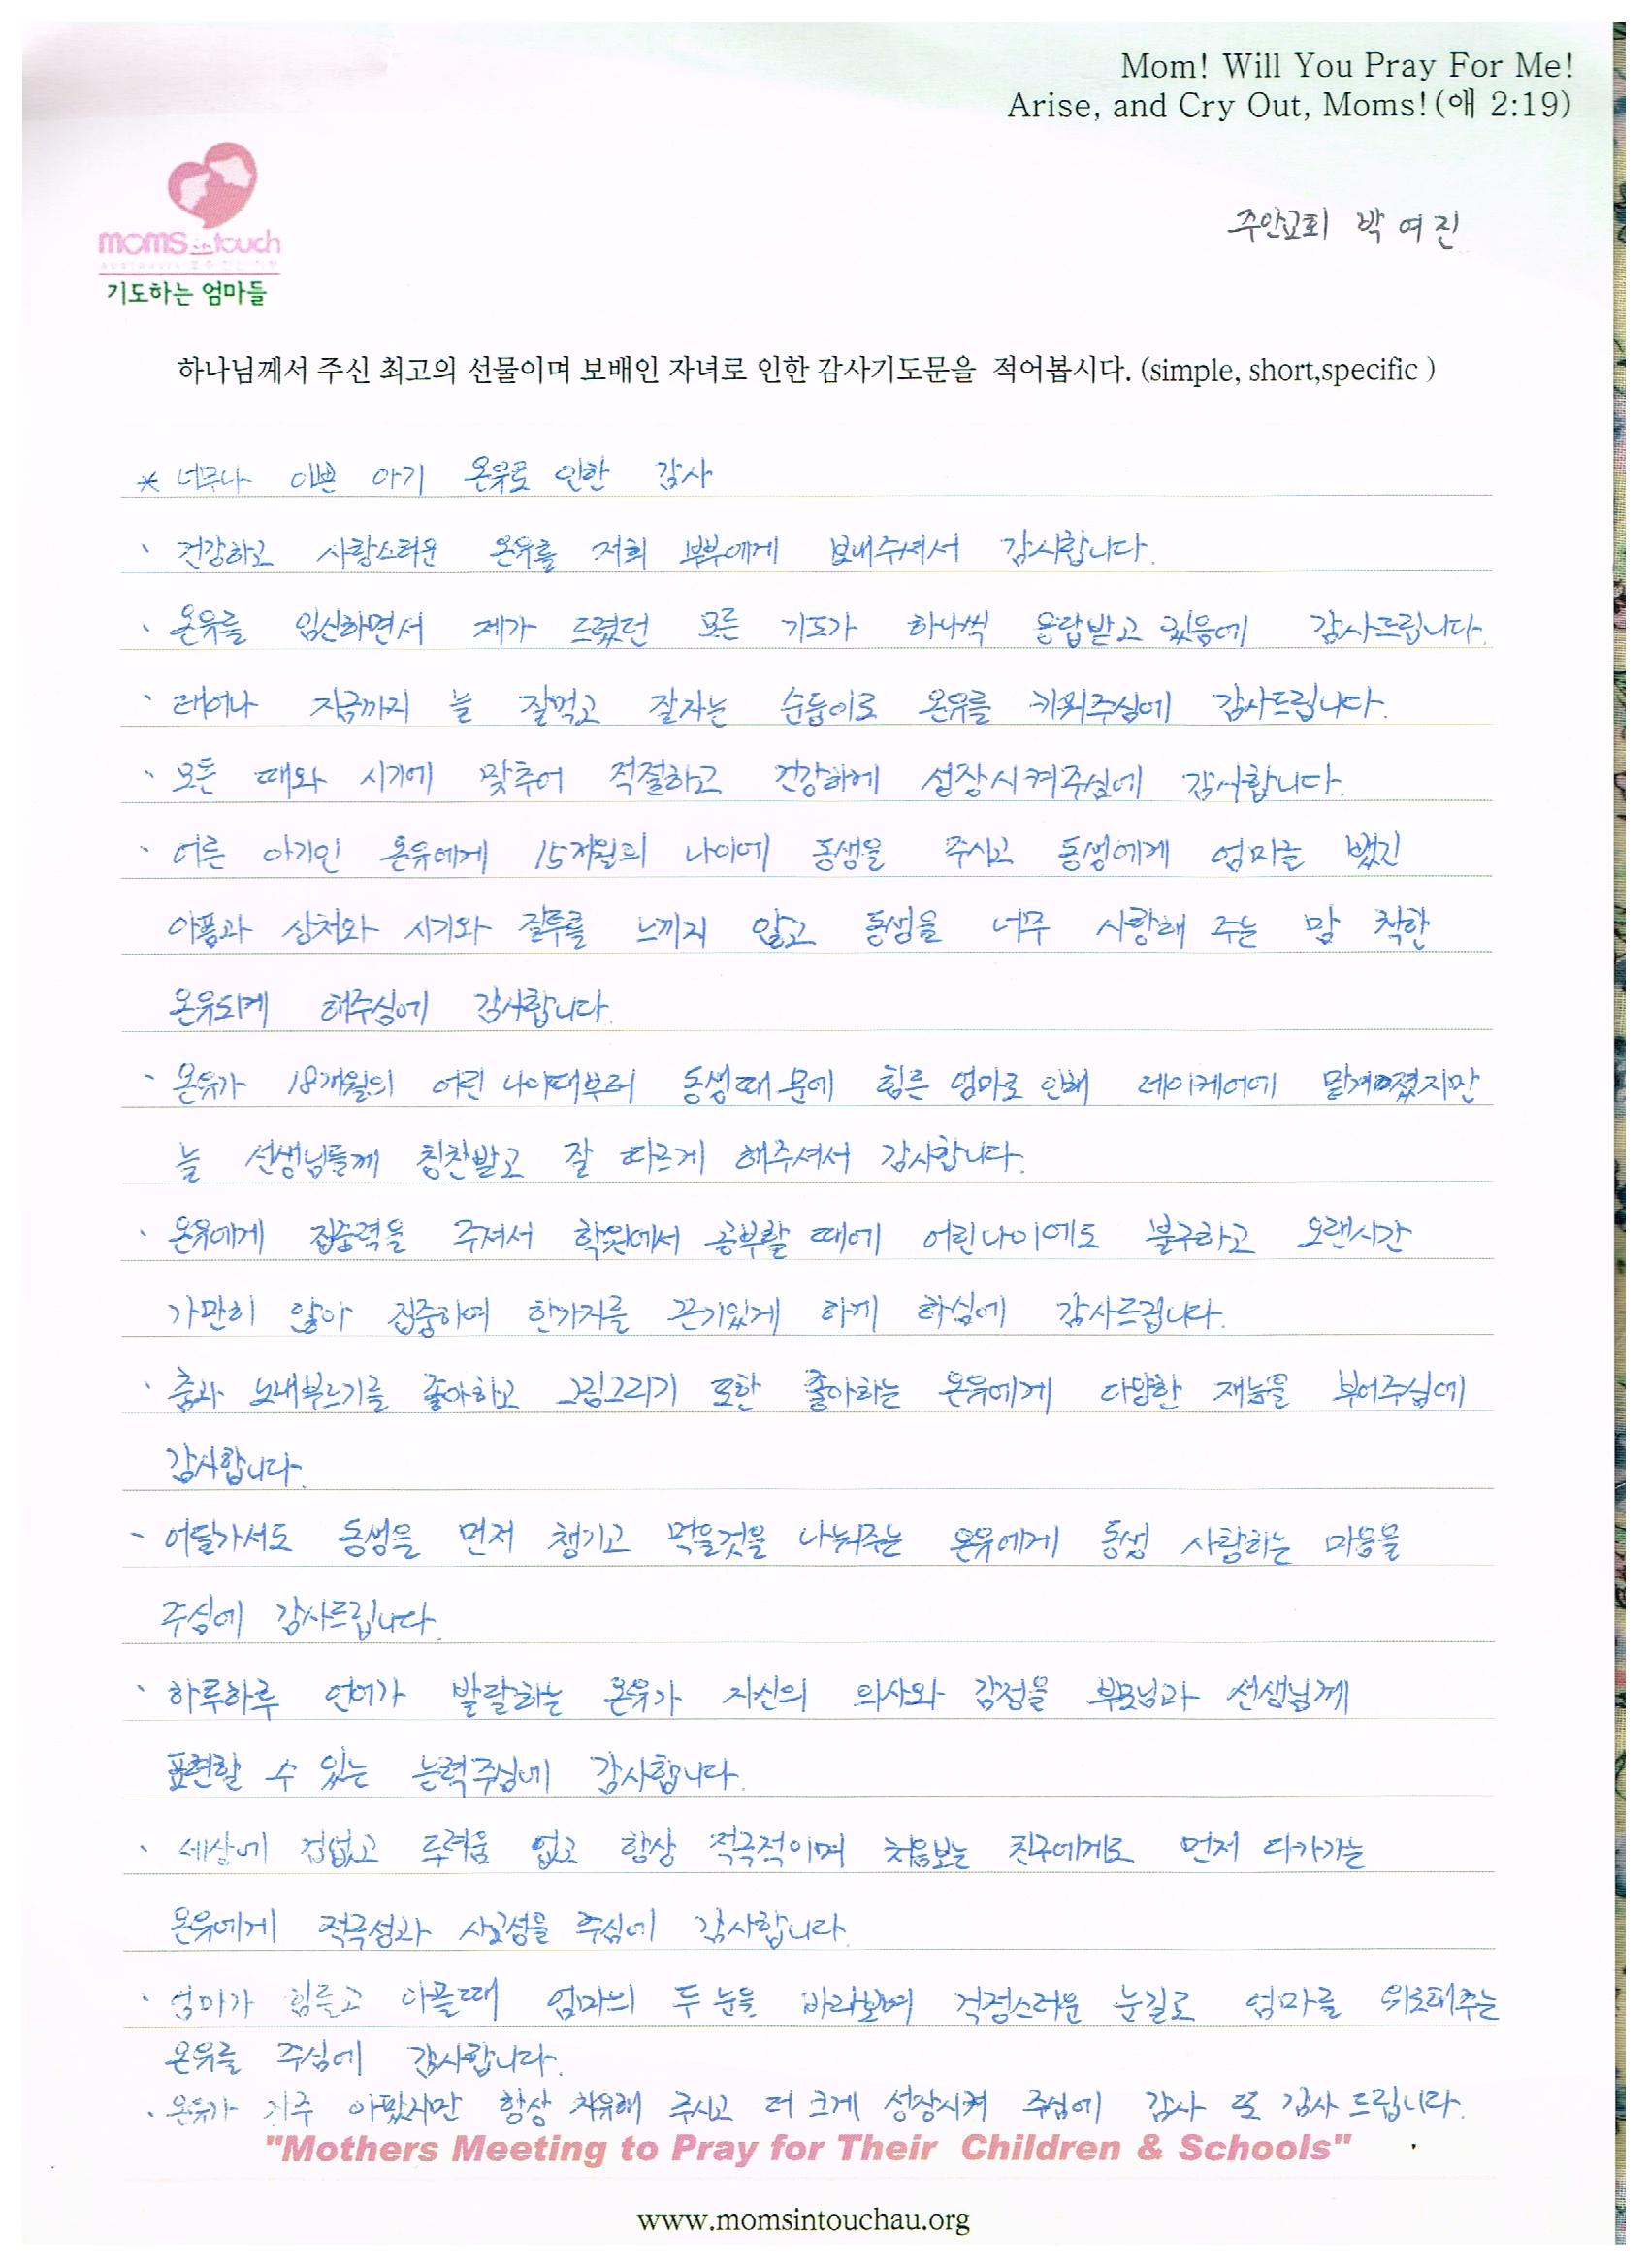 Mom! Will You Pray For Me!
Arise, and Cry Out, Moms!(애 2:19)
주안교회 박여진
moms in touch
기도하는 엄마들
하나님께서 주신 최고의 선물이며 보배인 자녀로 인한 감사기도문을 적어봅시다. (simple, short,specific )
* 너무나 이쁜 아기 온유로 인한 감사
· 건강하고 사랑스러운 온유를 저희 부부에게 보내주셔서 감사합니다.
· 온유를 임신하면서 제가 드렸던 모든 기도가 하나씩 응답받고 있음에 감사드립니다.
· 태어나 지금까지 늘 잘먹고 잘자는 순둥이로 온유를 키워주심에 감사드립니다.
· 모든 때와 시기에 맞추어 적절하고 건강하게 성장시켜주심에 감사합니다.
· 어른 아기인 온유에게 15개월의 나이에 동생을 주시고 동생에게 엄마를 뺐긴
아픔과 상처와 시기와 질투를 느끼지 않고 동생을 너무 사랑해 주는 맘 착한
온유되게 해주심에 감사합니다.
· 온유가 18개월의 어린 나이때부터 동생때문에 힘든 엄마로 인해 데이케어에 맡겨졌지만
늘 선생님들께 칭찬받고 잘 따르게 해주셔서 감사합니다.
· 온유에게 집중력을 주셔서 학원에서 공부할 때에 어린나이에도 불구하고 오랜시간
가만히 앉아 집중하여 한가지를 끈기있게 하게 하심에 감사드립니다.
· 춤과 노래부르기를 좋아하고 그림그리기 또한 좋아하는 온유에게 다양한 재능을 부어주심에
감사합니다.
- 어딜가서도 동생을 먼저 챙기고 먹을것을 나눠주는 온유에게 동생 사랑하는 마음을
주심에 감사드립니다.
· 하루하루 언어가 발달하는 온유가 자신의 의사와 감정을 부모님과 선생님께
표현할 수 있는 능력주심에 감사합니다.
· 세상에 겁없고 두려움 없고 항상 적극적이며 처음보는 친구에게도 먼저 다가가는
온유에게 적극성과 사교성을 주심에 감사합니다.
· 엄마가 힘들고 아플때 엄마의 두 눈을 바라보며 걱정스러운 눈길로 엄마를 위로해주는
온유를 주심에 감사합니다.
· 온유가 자주 아팠지만 항상 치유해 주시고 더 크게 성장시켜 주심에 감사 또 감사 드립니다.
"Mothers Meeting to Pray for Their Children & Schools"
www.momsintouchau.org